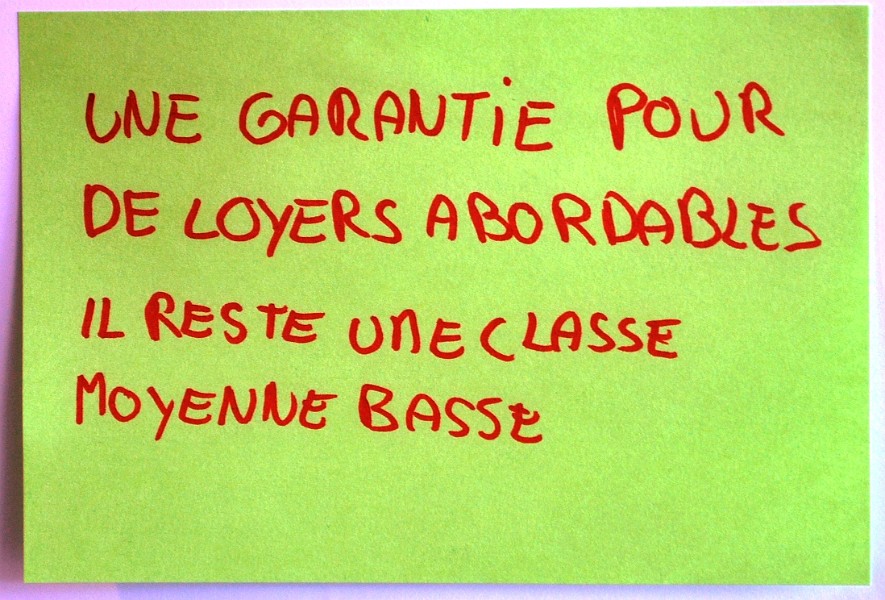 UNE GARANTIE POUR
DE LOYERS ABORDABLES
IL RESTE UNE CLASSE
MOYENNE BASSE